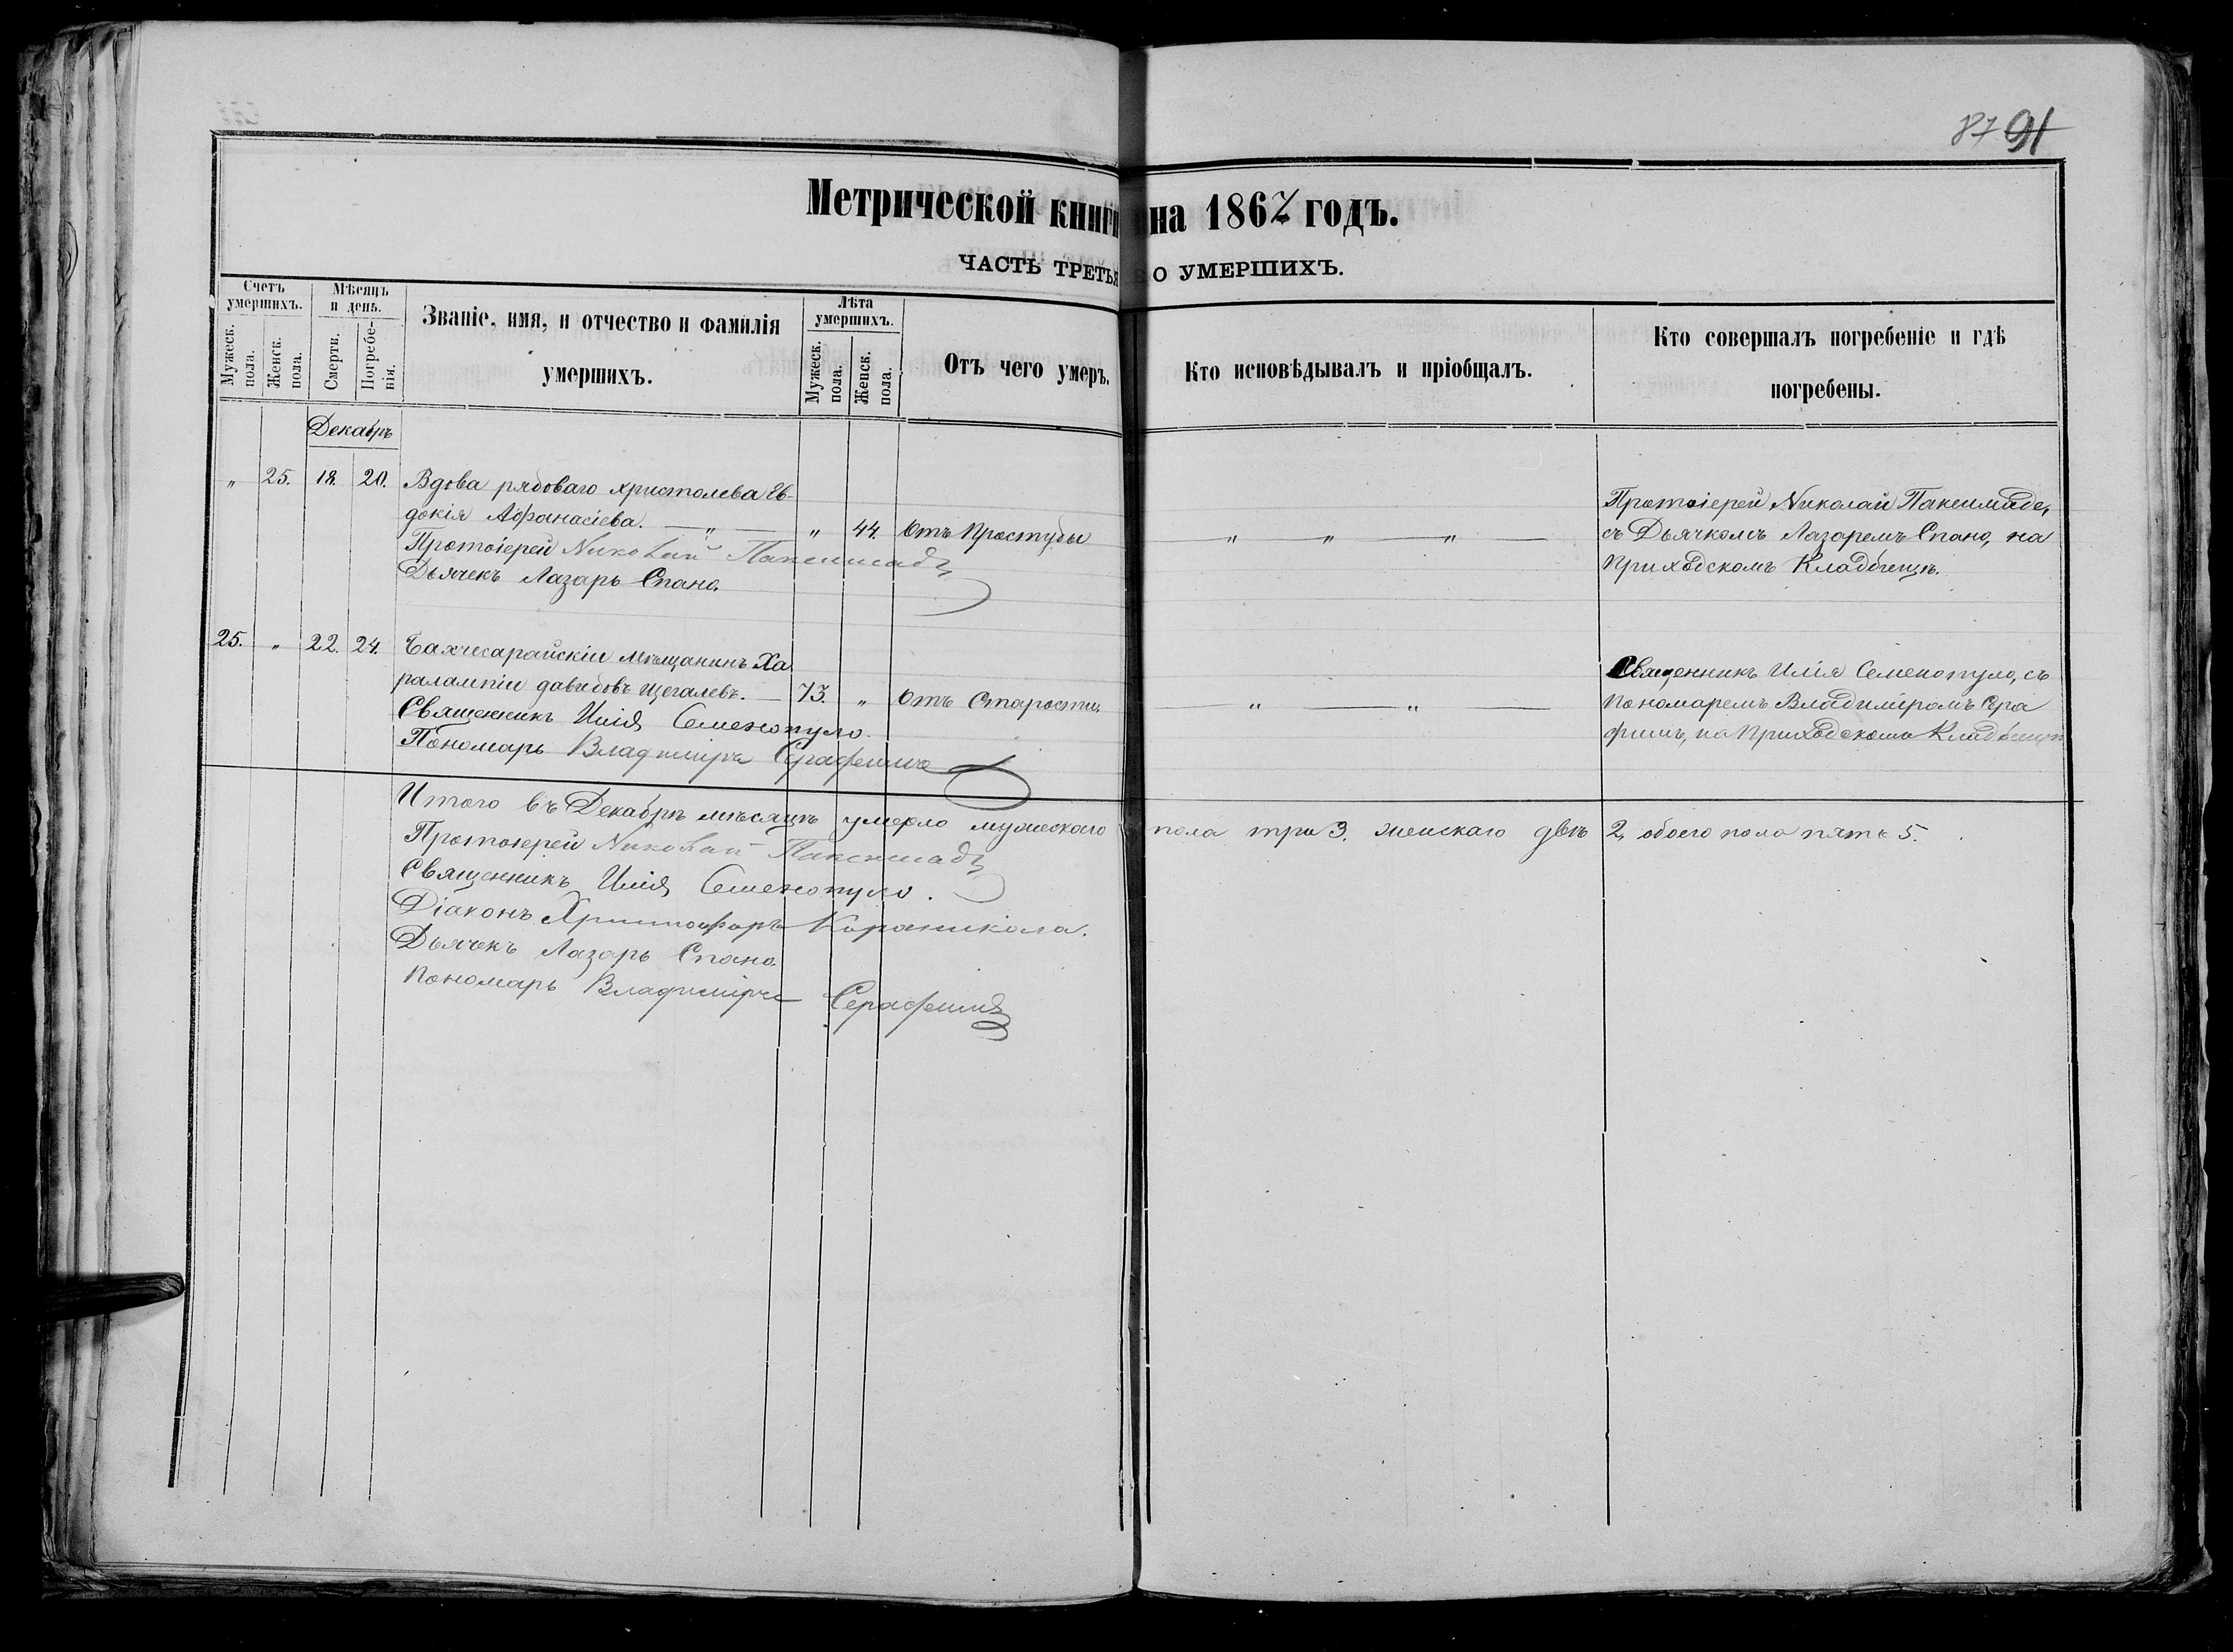 87 91
Метрической книги на 1867 годъ.
ЧАСТЬ ТРЕТЬЯ О УМЕРШИХЪ.
Счетъ умершихъ.
Мужеск. пола.
Женск. пола.
Мѣсяцъ и день.
Смерти.
Погребе-нія.
Званіе, имя, и отчество и фамилія
умершихъ.
Лѣта умершихъ.
Мужеск. пола.
Женск. пола.
Отъ чего умеръ.
Кто исповѣдывалъ и пріобщалъ.
Кто совершалъ погребеніе и гдѣ
погребены.
Декабрь
„ 25. 18. 20. Вдова рядоваго Христолева Ев-
докія Афанасіева. — „ — „ 44. Отъ Простуды — „ — „ — „ —
Протоіерей Николай Паксимаде,
съ Дьячкомъ Лазаремъ Спано, на
Приходскомъ Кладбищѣ.
Протоіерей Николай Паксимадз
Дьячекъ Лазарь Спано.
25. „ 22. 24. Бахчесарайскій мѣщанинъ Ха
ралампій Давидовъ Щегалевъ. — 73. „ Отъ Старости. — „ — „ —
Священникъ Илія Семенопуло, съ
Пономаремъ Владиміромъ Сера
фимъ, на Приходскомъ Кладбищѣ
Священникъ Илія Семенопуло.
Пономарь Владиміръ Серафимъ
Итого въ Декабрѣ мѣсяцѣ умерло мужескаго пола три 3. женскаго двѣ 2, обоего пола пять 5.
Протоіерей Николай Паксимадз
Священникъ Илія Семенопуло.
Діаконъ Христофоръ Кораникола.
Дьячекъ Лазарь Спано
Пономарь Владиміръ Серафимъ